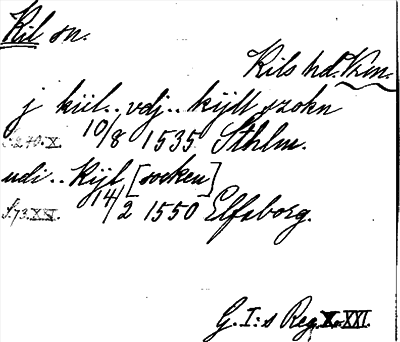 Kil sn.
Kils hd. Vrm.
j kiil.. vdj.. kijll szokn
S.270.X. 10/8 1535 Sthlm.
udi.. Kijl [socken]
S.73.XXI. 14/2 1550 Elfsborg.
G. I:s Reg. X o. XXI.